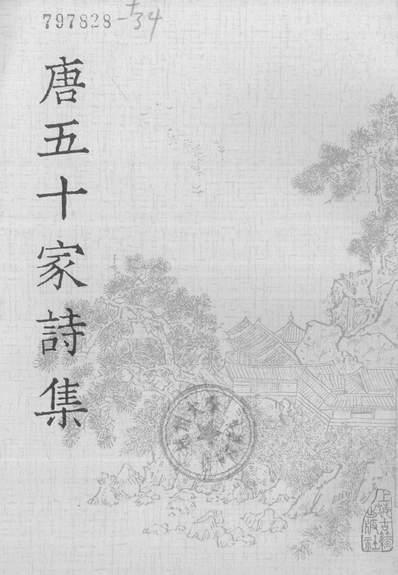 797828-34
唐五十家詩集
上海古籍出版社